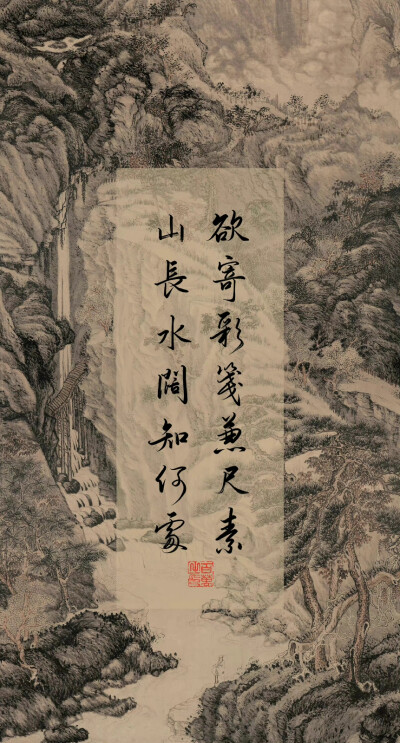 欲寄彩箋兼尺素
山長水闊知何處